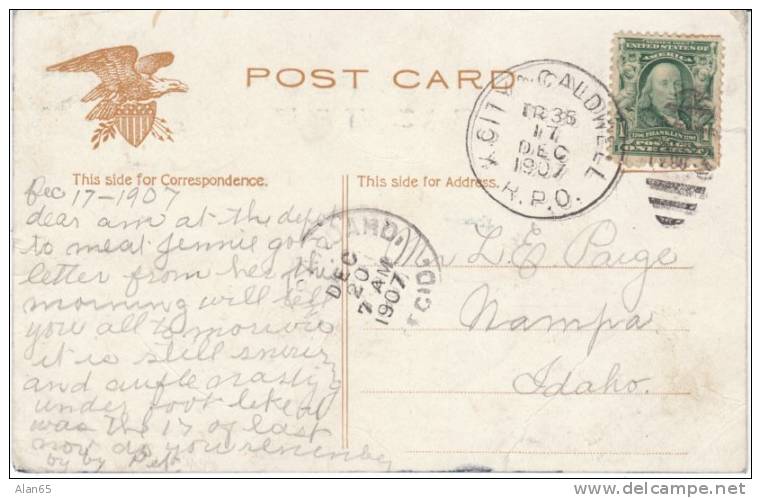 POST CARD
K. CITY & CALDWELL
TR 35
17
DEC
1907
R.P.O.
UNITED STATES OF
AMERICA
FRANKLIN
POSTAGE
ONE CENT
This side for Correspondence.
This side for Address.
Dec 17-1907
dear am at the depot
to meat Jennie got a
letter from her this
morning will tell
you all tomorrow
it is still
and nasty
under foot
was the 17 of last
now do you remember
by by Pet
DEC
20
7 AM
1907
L E. Paige
Nampa
Idaho.
Alan65
delcampe.net